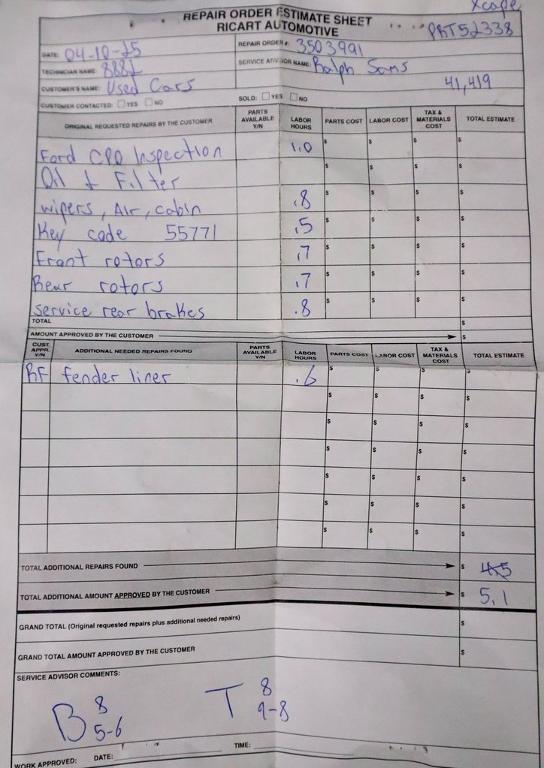 Xcape
REPAIR ORDER ESTIMATE SHEET
RICART AUTOMOTIVE
PRT52338
DATE: 04-10-25
REPAIR ORDER #: 3503991
TECHNICIAN NAME: 8882
SERVICE ADVISOR NAME: Ralph Sams
CUSTOMER'S NAME: Used Cars
41,419
CUSTOMER CONTACTED: ☐ YES ☐ NO
SOLD: ☐ YES ☐ NO
ORIGINAL REQUESTED REPAIRS BY THE CUSTOMER PARTS AVAILABLE Y/N LABOR HOURS PARTS COST LABOR COST TAX & MATERIALS COST TOTAL ESTIMATE
Ford CPO Inspection 1.0 $ $ $ $
Oil & Filter $ $ $ $
wipers, Air, cabin .8 $ $ $ $
Key code 55771 .5 $ $ $ $
Front rotors .7 $ $ $ $
Rear rotors .7 $ $ $ $
service rear brakes .8 $ $ $ $
TOTAL $
AMOUNT APPROVED BY THE CUSTOMER $
CUST. APPR. Y/N ADDITIONAL NEEDED REPAIRS FOUND PARTS AVAILABLE Y/N LABOR HOURS PARTS COST LABOR COST TAX & MATERIALS COST TOTAL ESTIMATE
RF fender liner .6 $ $ $ $
$ $ $ $
$ $ $ $
$ $ $ $
$ $ $ $
$ $ $ $
$ $ $ $
TOTAL ADDITIONAL REPAIRS FOUND $ 4.5
TOTAL ADDITIONAL AMOUNT APPROVED BY THE CUSTOMER $ 5.1
GRAND TOTAL (Original requested repairs plus additional needed repairs) $
GRAND TOTAL AMOUNT APPROVED BY THE CUSTOMER $
SERVICE ADVISOR COMMENTS:
B 8 5-6 T 8 9-8
WORK APPROVED: DATE: TIME: